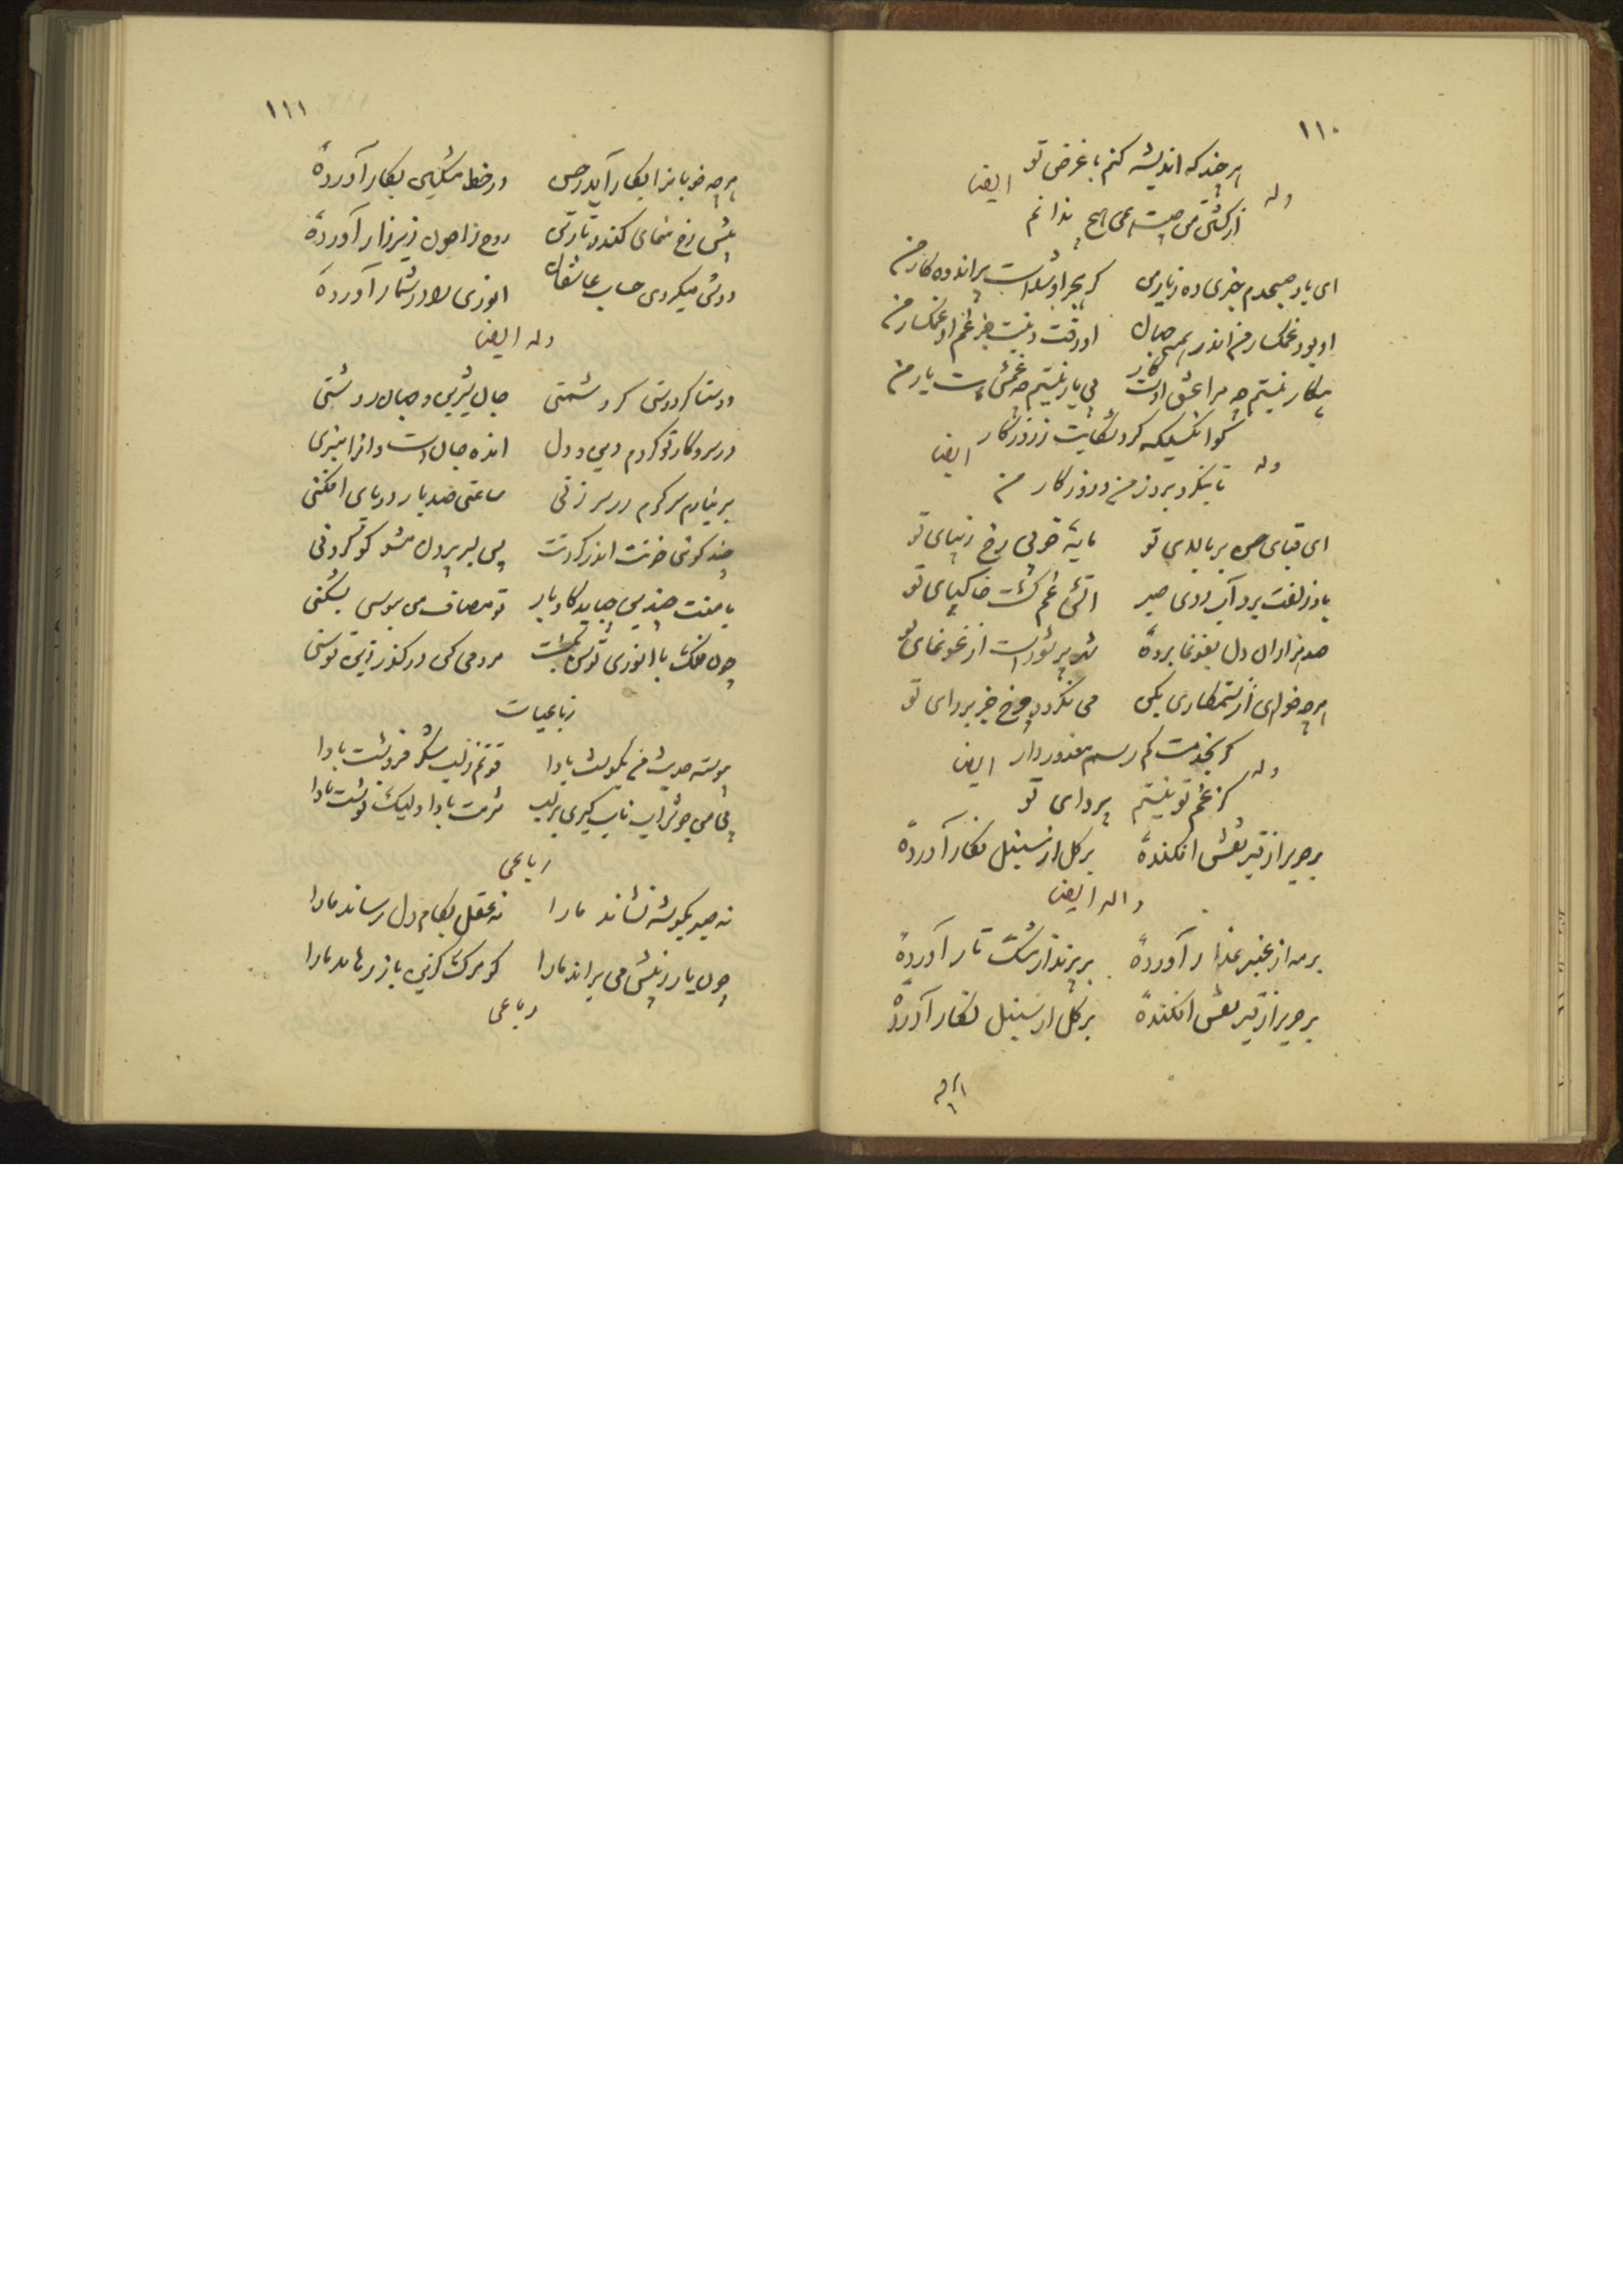 ۱۱۰
هر چند که اندیشه کنم با غرض تو
وله ایضا
از کشتن من چیست همی هیچ ندانم
ای باد صبحدم خبری ده ز یار من کز هجر او شدست پر اندوه کار من
او بود غمگسار من اندر همه جهان او رفت و نیست جز غم او غمگسار من
بیکار نیستم چه مرا عشق اوست کار بی یار نیستم چه غمش هست یار من
کو آنکسیکه کرد شکایت ز روزگار
وله ایضا
تا بنگرد بروز من و روزگار من
ای قبای حسن بر بالای تو مایه خوبی رخ زیبای تو
باد زلفت برد آب روی صبر آتش غم گشت خاک پای تو
صد هزاران دل بغوغا برده شد پر شورست از غوغای تو
هرچه خواهی از ستمکاری بکن می نگردد چرخ جز بر رای تو
گر بخدمت کم رسم معذور دار
وله ایضا
کز غم تو نیستم پروای تو
بر حریر از قیر نقش افکنده بر گل از سنبل نگار آورده
وله ایضا
بر مه از عنبر عذار آورده بر پرند از مشک تار آورده
بر حریر از قیر نقش افکنده بر گل از سنبل نگار آورده
هرچه
۱۱۱
هرچه خوبانرا بکار آید ز حسن در خط مشکین بکار آورده
پیش رخ منمای کندر تا رتن روح را چون زیر زار آورده
دوش میکردی حساب عاشقان انوری را در شمار آورده
وله ایضا
دوستا گر دوستی گر دشمنی جان شیرین و جهان روشنی
در سر و کار تو کردم دین و دل انده جان است وانرا میزنی
بر نیارم سر گرم در سر زنی ساعتی صد بار در پای افکنی
چند گوئی خونت اندر گردنت پی بسر بر دل مشو گو گردنی
با منت چندین چباید کارزار تو مصاف من ببوسی بشکنی
چون فلک با انوری توسن گشت مردمی کن در گذر زین توسنی
رباعیات
پیوسته حدیث من بگوشت بادا قوتم ز لب شکر فروشت بادا
بی من چو شراب ناب گیری بر لب شرمت بادا و لیک نوشت بادا
رباعی
نه صبر بگوشه نشاند ما را نه عقل بکام دل رساند ما را
چون یار ز پیش می براند ما را کو مرگ کزین باز رهاند ما را
رباعی